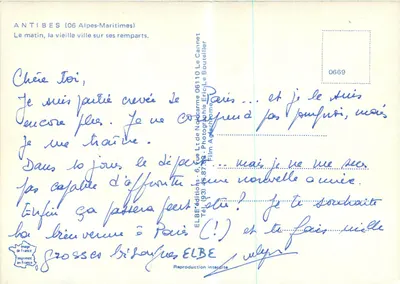 ANTIBES (06 Alpes-Maritimes)
Le matin, la vieille ville sur ses remparts.
0669
Chère Toi,
Je suis partie crevée de Paris... et je le suis
encore plus. Je ne comprend pas pourquoi, mais
je me traîne.
Dans 10 jours le départ... mais je ne me sens
pas capable d'affronter une nouvelle année.
Enfin ça passera peut-être? Je te souhaite
la bienvenue à Paris (!) et te fais mille
grosses bisouques
ELBE
Reproduction interdite
ELBE Editions, 6, Rue Lt de Normanne 06110 Le Cannet
Tél. (93) 47.87.99 - Photographie Eric Le Boursillier
Film Agfachrome